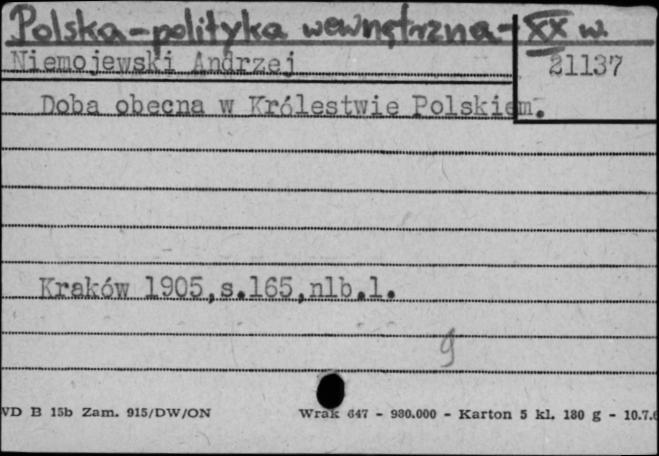 Polska-polityka wewnętrzna-XX w.
Niemojewski Andrzej
21137
Doba obecna w Królestwie Polskiem.
Kraków 1905,s.165,nlb.1.
9
VD B 15b Zam. 915/DW/ON
Wrak 647 - 980.000 - Karton 5 kl. 180 g - 10.7.6